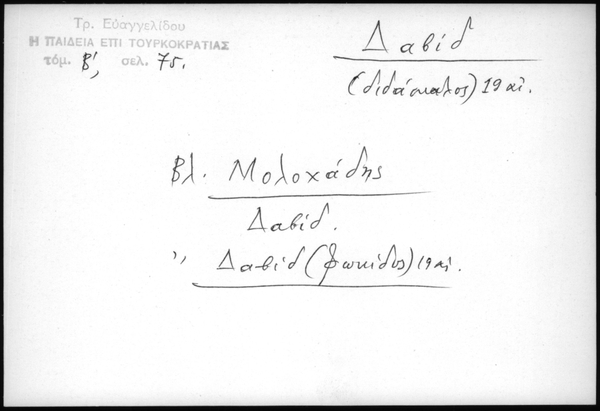 Τρ. Εὐαγγελίδου
Η ΠΑΙΔΕΙΑ ΕΠΙ ΤΟΥΡΚΟΚΡΑΤΙΑΣ
τόμ. Β', σελ. 75.
Δαβίδ
(διδάσκαλος) 19 αἰ.
Βλ. Μολοχάδης
Δαβίδ.
" Δαβίδ (Φωκίδος) 19 αἰ.